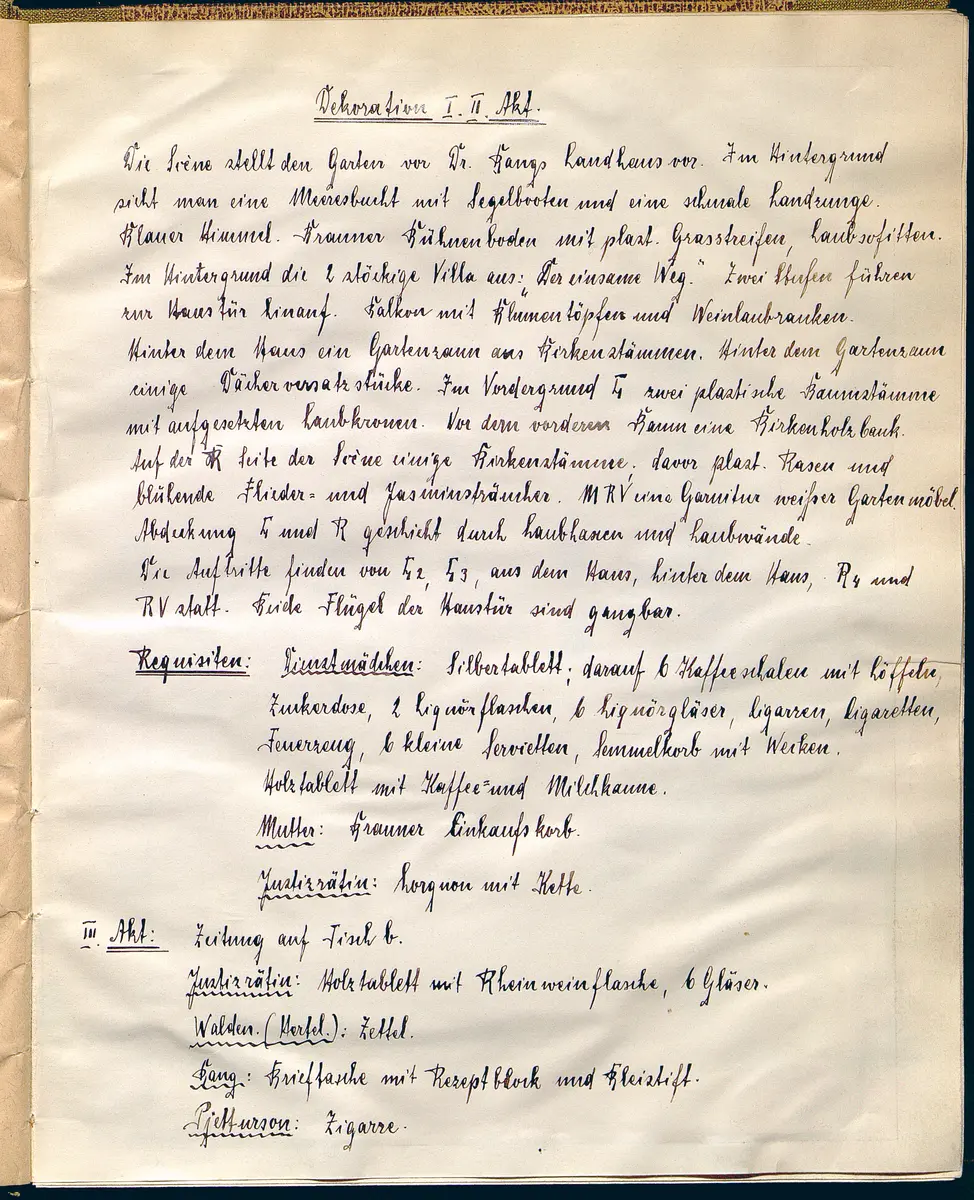 Dekoration I. II. Akt.
Die Scène stellt den Garten vor Dr. Bangs Landhaus vor. Im Hintergrund
sieht man eine Meeresbucht mit Segelbooten und eine schmale Landzunge.
Blauer Himmel. Brauner Bühnenboden mit plast. Grasstreifen, Laubsofitten.
Im Hintergrund die 2 stöckige Villa aus: "Der einsame Weg." Zwei Stufen führen
zur Haustür hinauf. Balkon mit Blumentöpfen und Weinlaubranken.
Hinter dem Haus ein Gartenzaun aus Birkenstämmen. Hinter dem Gartenzaun
einige Dächerversatzstücke. Im Vordergrund L zwei plastische Baumstämme
mit aufgesetzten Laubkronen. Vor dem vorderen Baum eine Birkenholzbank.
Auf der R Seite der Scène einige Birkenstämme, davor plast. Rasen und
blühende Flieder= und Jasminsträucher. MRV eine Garnitur weißer Gartenmöbel.
Abdeckung L und R geschieht durch Laubhasen und Laubwände.
Die Auftritte finden von L2, L3, aus dem Haus, hinter dem Haus, R4 und
RV statt. Beide Flügel der Haustür sind gangbar.
Requisiten: Dienstmädchen: Silbertablett; darauf 6 Kaffeeschalen mit Löffeln,
Zuckerdose, 2 Liqnörflaschen, 6 Liqnörgläser, Cigarren, Cigaretten,
Feuerzeug, 6 kleine Servietten, Semmelkorb mit Wecken.
Holztablett mit Kaffee= und Milchkanne.
Mutter: Brauner Einkaufskorb.
Justizrätin: Lorgnon mit Kette.
III. Akt: Zeitung auf Tisch b.
Justizrätin: Holztablett mit Rheinweinflasche, 6 Gläser.
Walden. (Hertel.): Zettel.
Bang: Brieftasche mit Rezeptblock und Bleistift.
Pjetturson: Zigarre.